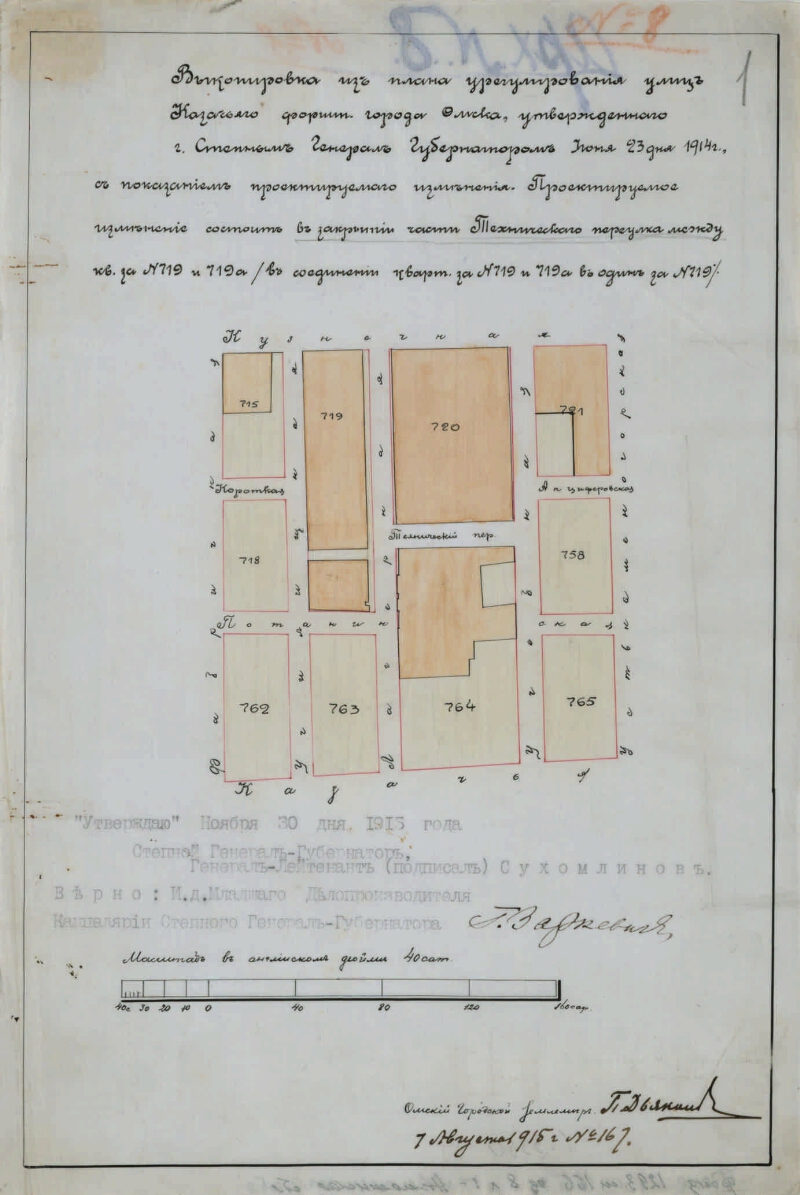 № 8
Арх. № 8.
1
Выкопировка изъ плана урегулированія улицъ
Казачьяго форшт. города Омска, утвержденнаго
г. Степнымъ Генералъ Губернаторомъ Іюня 23 дня 1914 г.,
съ показаніемъ проектируемаго измѣненія. Проектируемое
измѣненіе состоитъ въ закрытіи части Техническаго переулка между
кв. за №719 и 719а /въ соединеніи кварт. за №719 и 719а въ одинъ за №719/.
К у з н е ч н а я
715
719
720
721
Короткая
Анциферовская
Техническій пер.
718
758
П о т а н и н с к а я
762
763
764
765
К а з а ч ь я
"Утверждаю" Ноября 30 дня. 1915 года
Степной Генералъ-Губернаторъ,
Генералъ-Лейтенантъ (подписалъ) Сухомлиновъ.
Вѣрно: И.д.Младшаго Дѣлопроизводителя
Канцеляріи Степного Генералъ-Губернатора
Масштабъ въ англійскомъ дюймѣ 40 саж.
40с. 30 20 10 0 40 80 120 160 саж.
Омскій Городской Землемѣръ
7 Августа 1915 г. № 167.